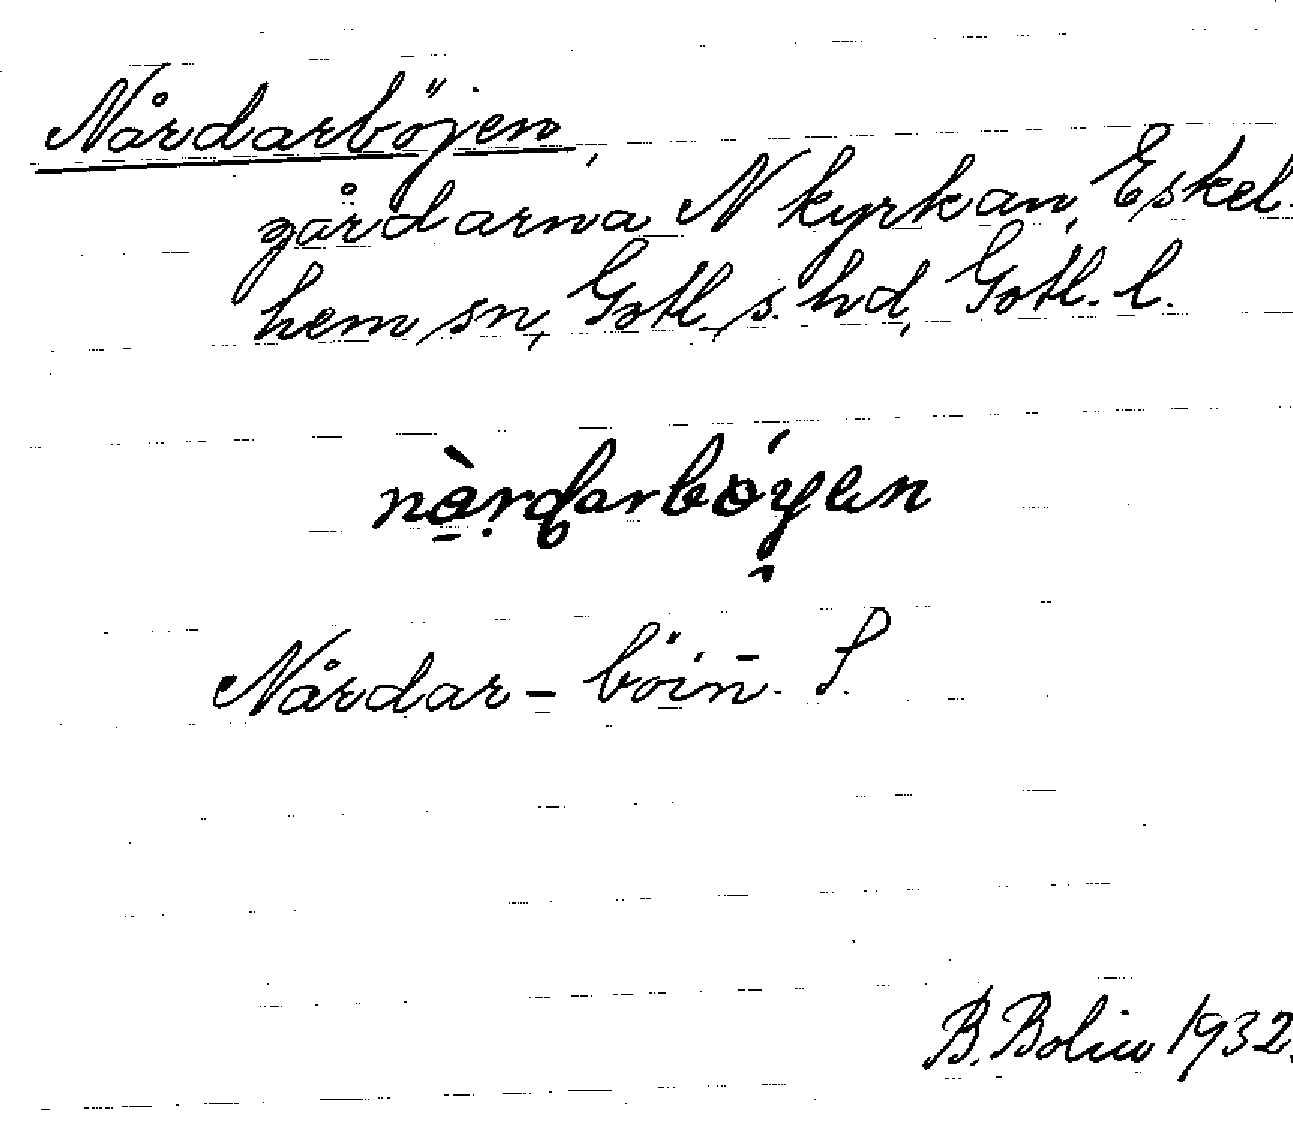 Nårdarböjen,
gårdarna N kyrkan, Eskel-
hem sn, Gotl. s. hd, Gotl. l.
nàrdarböyen
Nårdar – böin̄. S.
B. Bolin 1932.